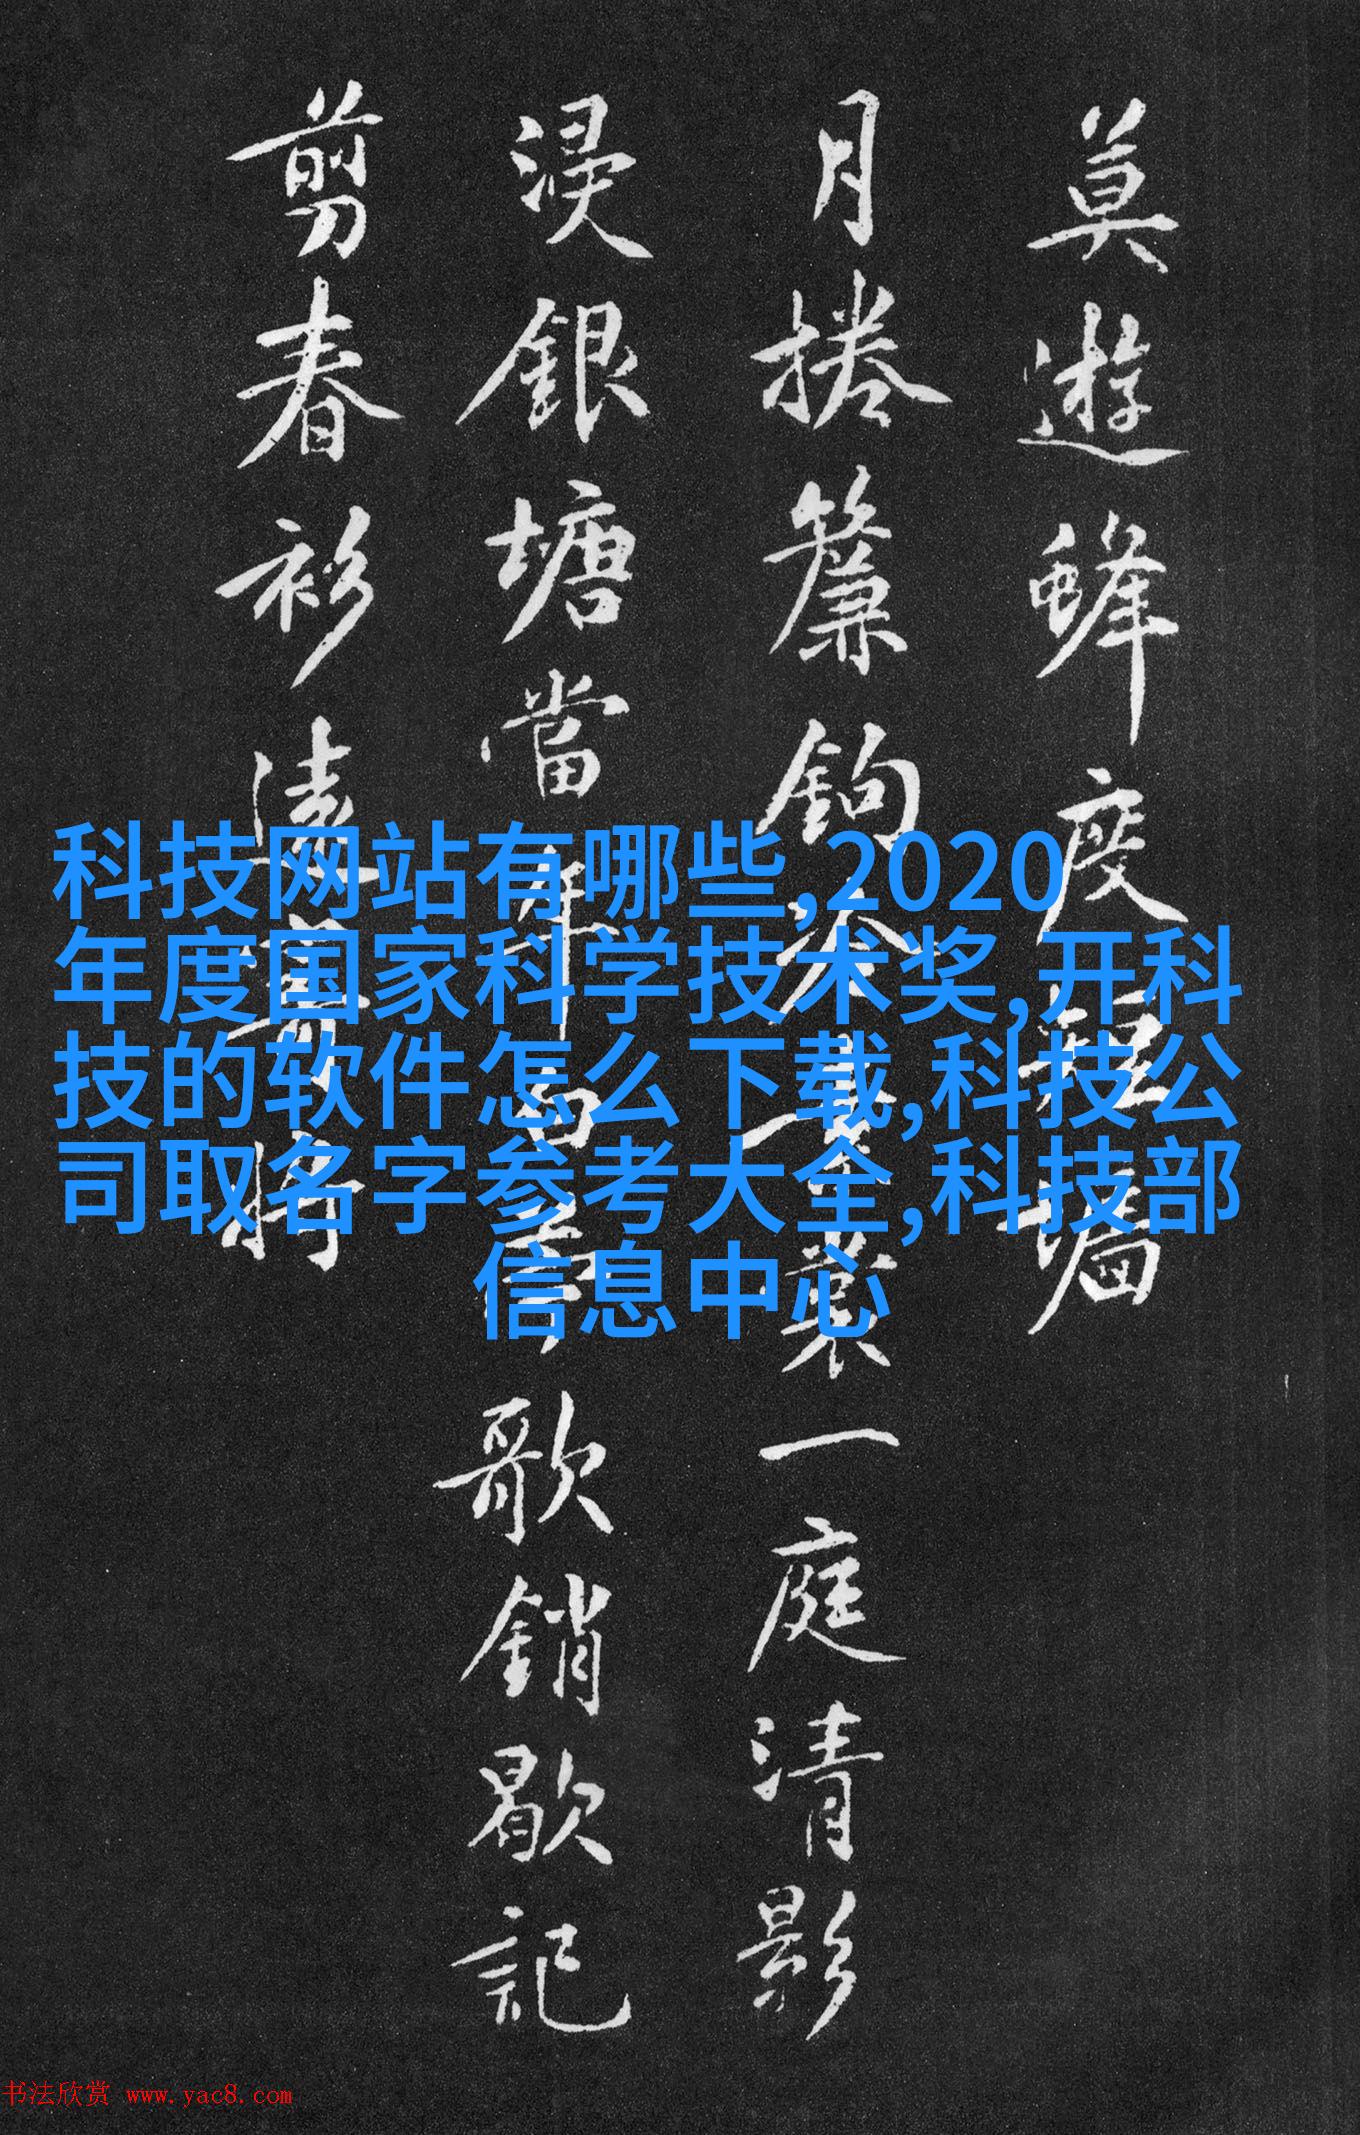 莫遊蜂度墙
月捲簾鉤裊一庭清影
浸銀塘當年歌銷歇記
剪春衫遠寄將
科技网站有哪些,2020
年度国家科学技术奖,开科
技的软件怎么下载,科技公
司取名字参考大全,科技部
信息中心
书法欣赏 www.yac8.com